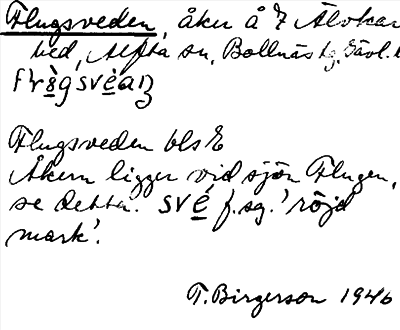 Flugsveden, åker å 7 Älvkar
hed, Alfta sn, Bollnäs tg, Gävl. l

Flugsveden bls
Åkern ligger vid sjön Flugen,
se detta. své f. sg. 'röjd
mark'.
T. Birgerson 1946